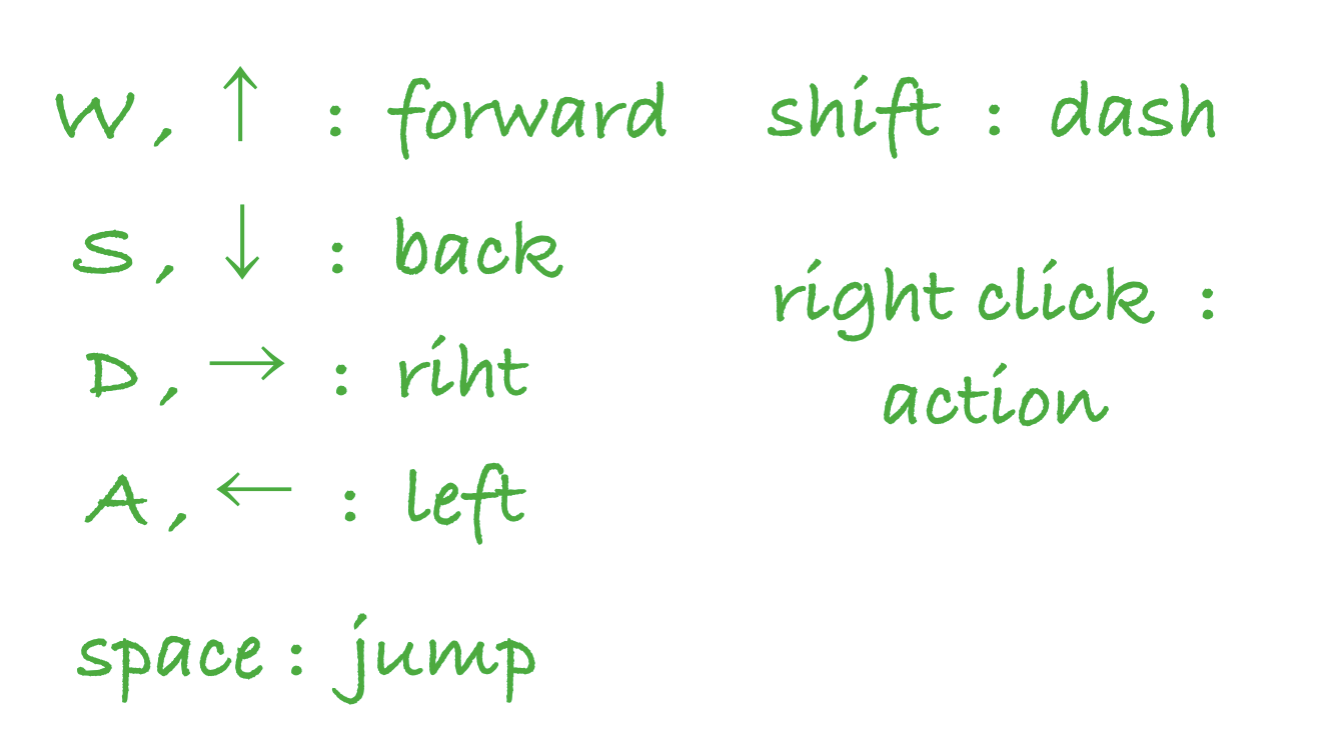 W, ↑ : forward
S, ↓ : back
D, → : riht
A, ← : left
space : jump
shift : dash
right click :
action